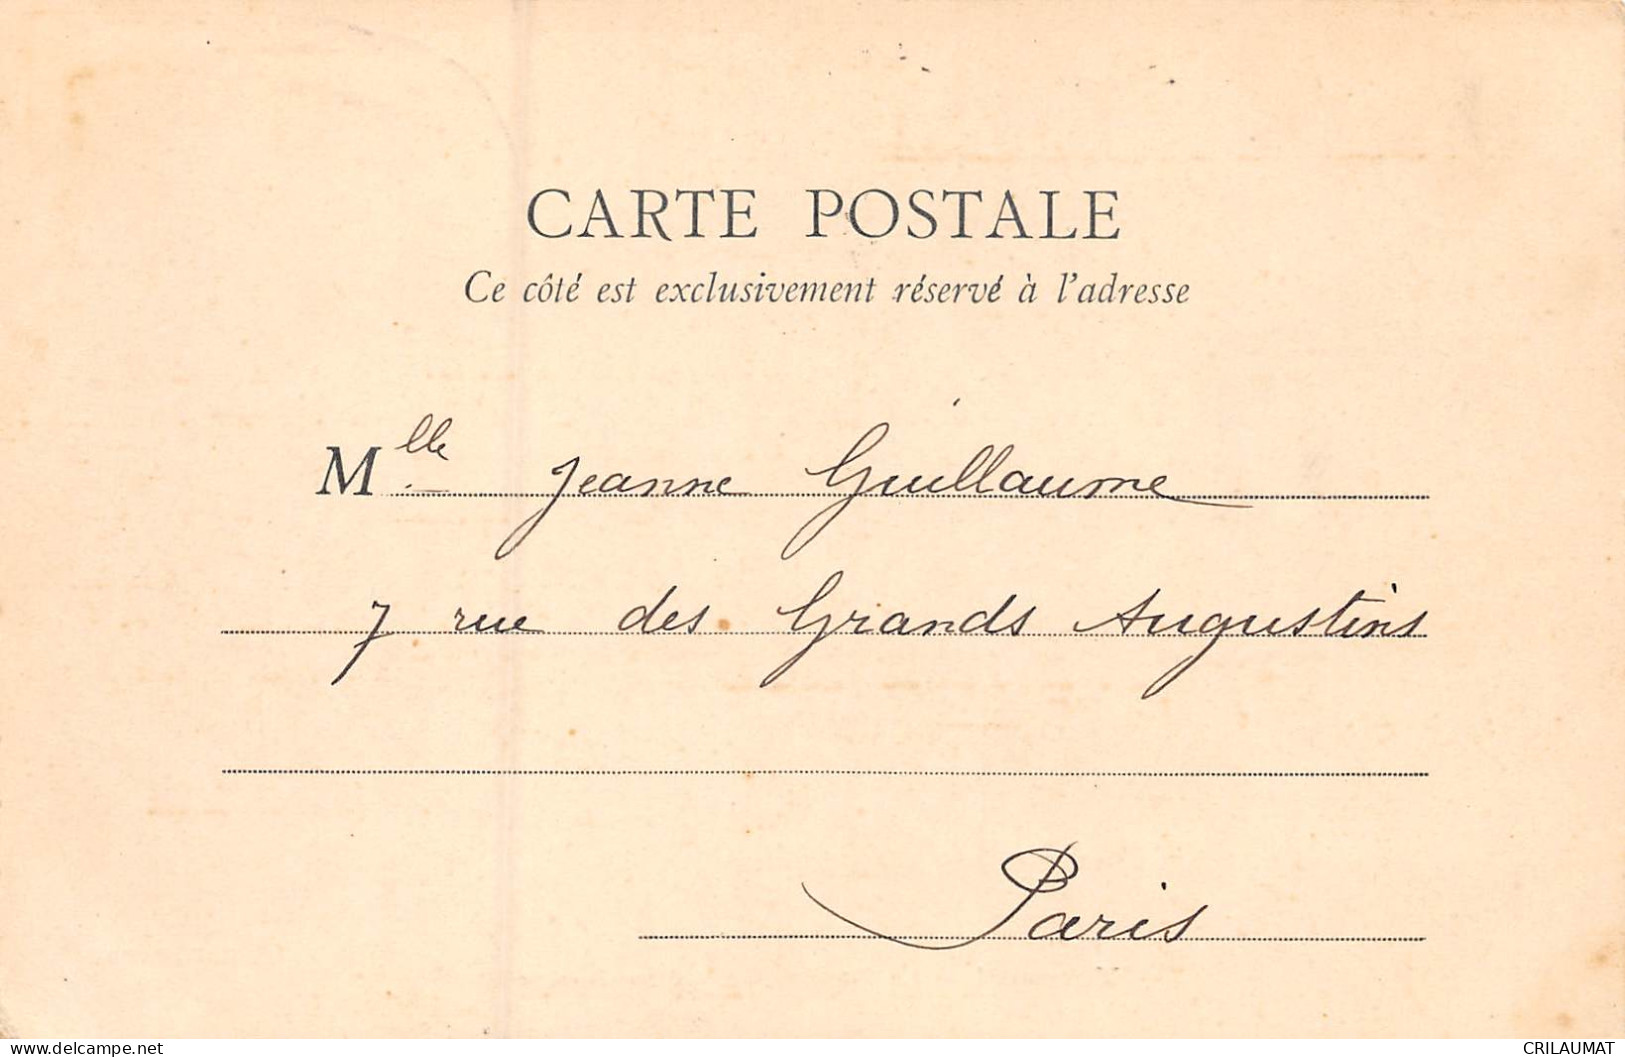 CARTE POSTALE
Ce côté est exclusivement réservé à l'adresse
Mlle Jeanne Guillaume
7 rue des Grands Augustins
Paris
www.delcampe.net
CRILAUMAT